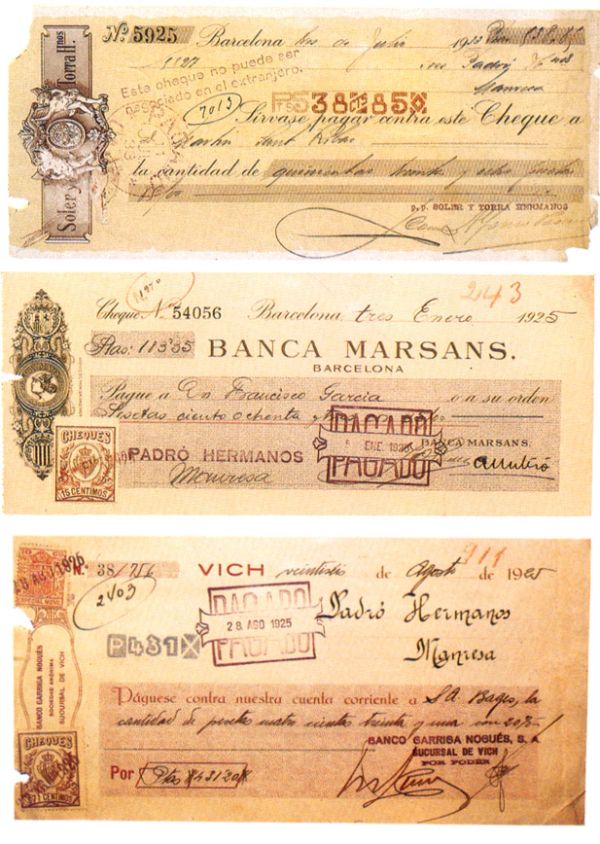 Nº 5925 Barcelona de Julio 1922
1127
Este cheque no puede ser
negociado en el extranjero.
Padró
Manresa
7013
Soler y Torra Hnos
Sírvase pagar contra este Cheque a
la cantidad de quinientas treinta y ocho
p.p. SOLER Y TORRA HERMANOS
243
Cheque N. 54056 Barcelona tres Enero 1925
Ptas:
BANCA MARSANS.
BARCELONA
Pague a Dn Francisco Garcia o a su orden
Pesetas ciento ochenta
PAGADO
ENE. 1925
PAGADO
BANCA MARSANS.
CHEQUES
15 CENTIMOS
PADRÓ HERMANOS
Manresa
28 AGO 1925
N. 38/756 VICH de Agosto de 1925
2403
PAGADO
28 AGO 1925
PAGADO
Padró Hermanos
Manresa
P431
BANCO GARRIGA NOGUÉS
SOCIEDAD ANÓNIMA
SUCURSAL DE VICH
Páguese contra nuestra cuenta corriente a S.A. Bages, la
cantidad de pesetas cuatro cientas treinta y una con 20%
BANCO GARRIGA NOGUÉS, S. A.
SUCURSAL DE VICH
POR PODER
CHEQUES
CENTIMOS
Por Ptas 431'20